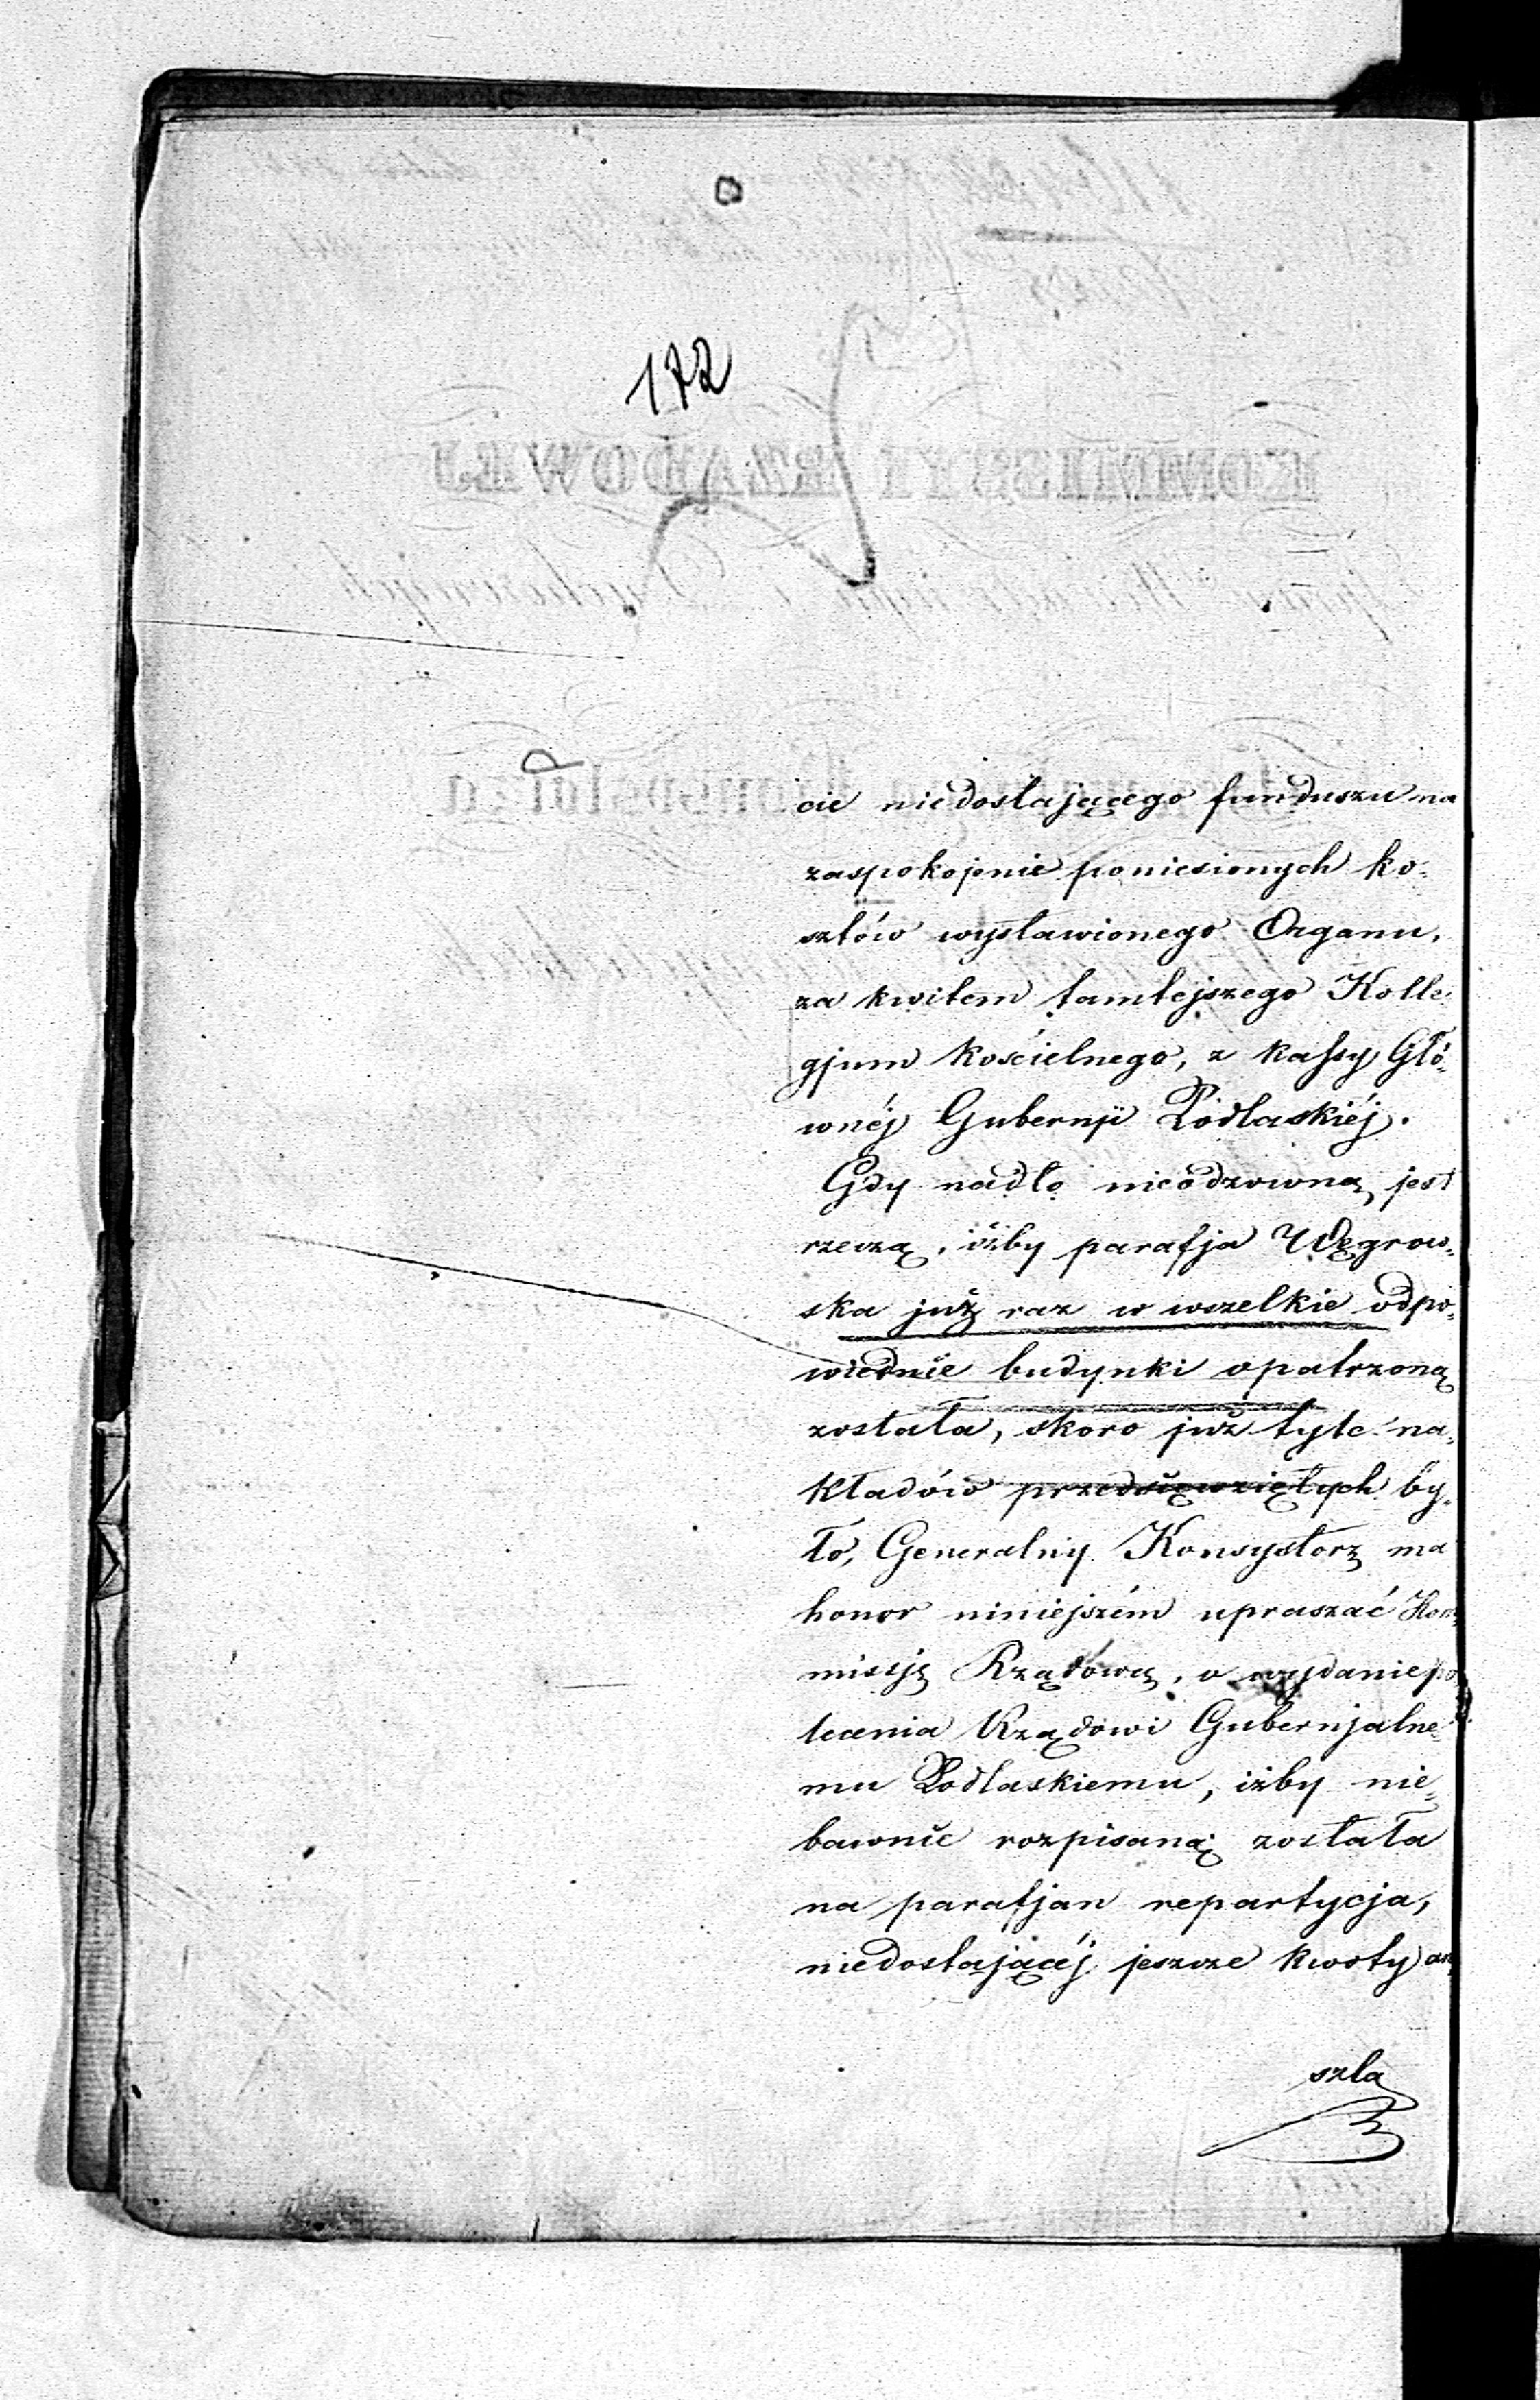 172
cie niedostającego funduszu na
zaspokojenie poniesionych ko-
sztów wystawionego Organu,
za kwitem tamtejszego Kolle-
gjum kościelnego, z kassy Głó-
wnéj Gubernji Podlaskiéj.
Gdy nadto nieodzowną jest
rzeczą, iżby parafja Węgrow-
ska już raz w wszelkie odpo-
wiednie budynki opatrzoną
została, skoro już tyle na-
kładów przedsięwziętych by-
ło, Generalny Konsystorz ma
honor niniejszém upraszać Kom-
missję Rządową, o wydanie po-
lecenia Rządowi Gubernjalne-
mu Podlaskiemu, iżby nie-
bawnie rozpisaną została
na parafjan repartycja,
niedostającéj jeszcze kwoty
szla